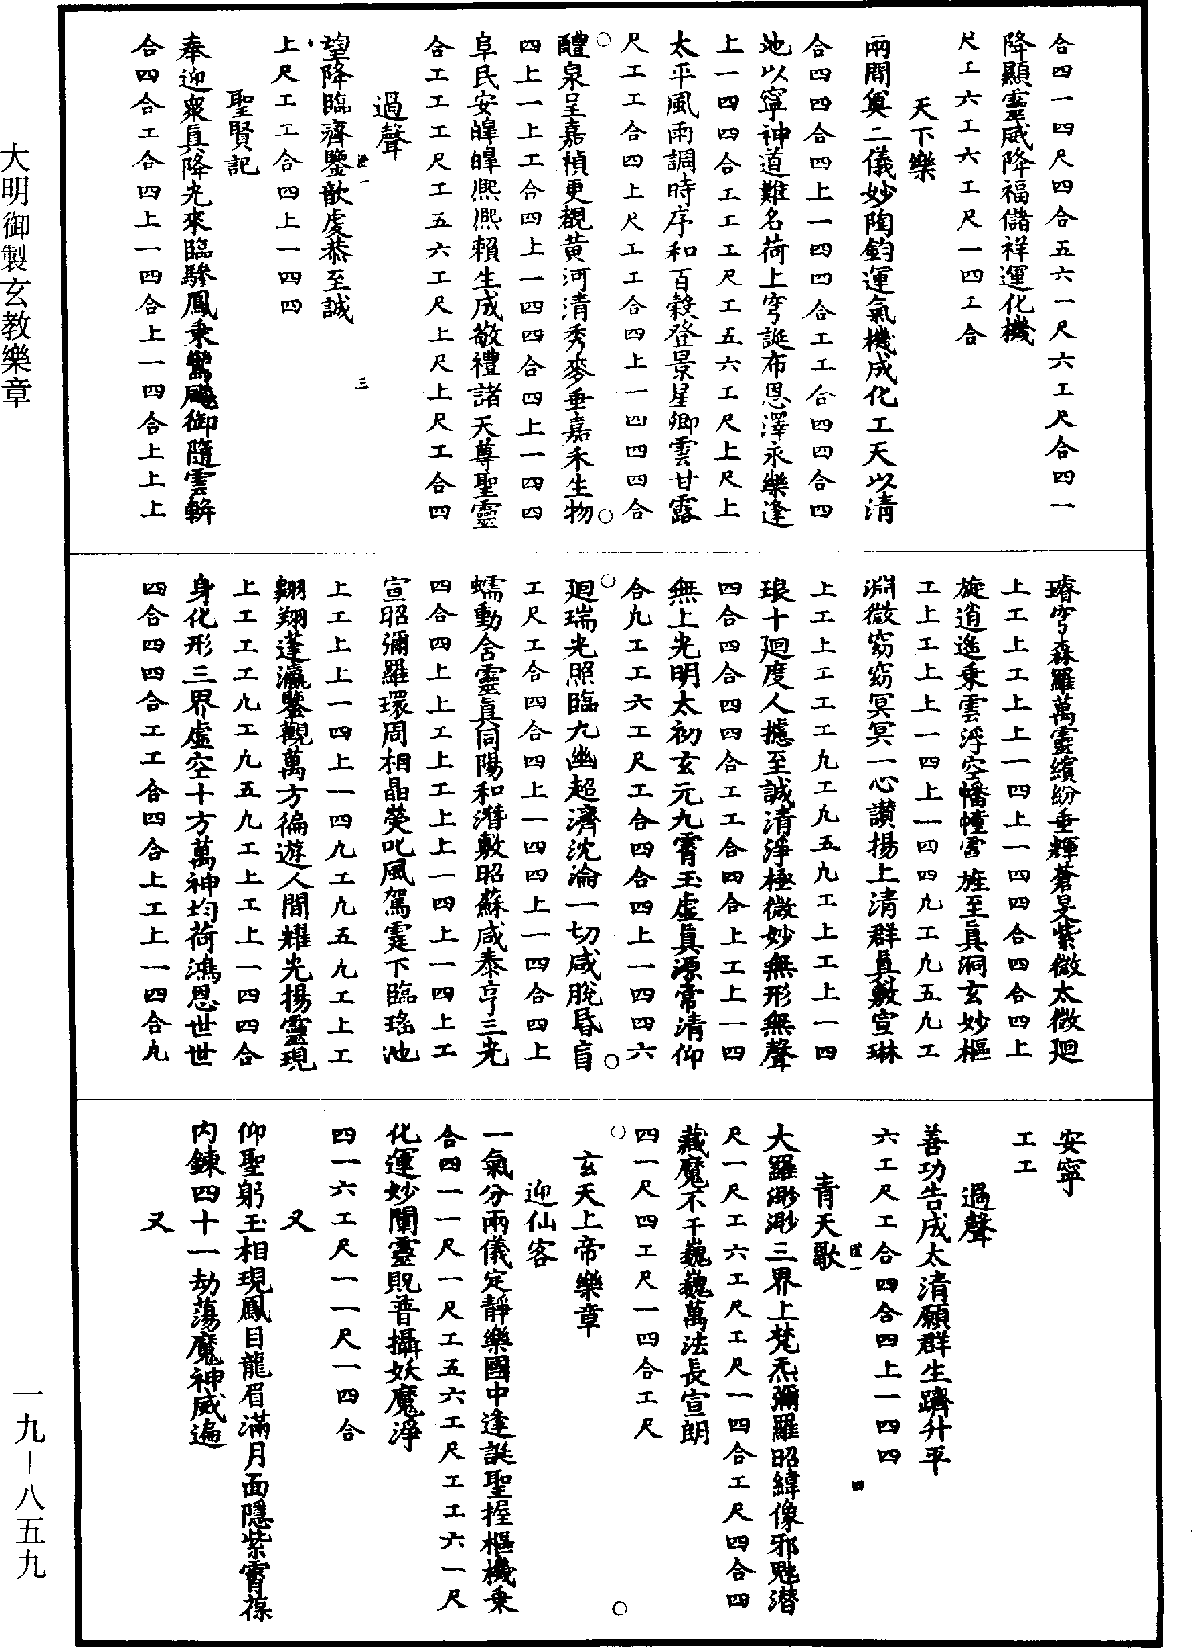 大明御製玄教樂章
一九—八五九
合四一四尺四合五六一尺六工尺合四一
降顯靈威降福儲祥運化機
尺工六工六工尺一四工合
天下樂
兩間奠二儀妙陶鈞運氣機成化工天以清
合四四合四上一四四合工工合四四合四
地以寧神道難名荷上穹誕布恩澤永樂逢
上一四四合工工尺工五六工尺上尺上
太平風雨調時序和百穀登景星卿雲甘露
尺工工合四上尺工工合四上一四四四合
醴泉呈嘉楨更覩黃河清秀麥垂嘉禾生物
四上一上工合四上一四四合四上一四四
阜民安皥皥熙熙賴生成敬禮諸天尊聖靈
合工工工尺工五六工尺上尺上尺工合四
過聲
望降臨濟鑒歆虔恭至誠
上尺工工合四上一四四
三
聖賢記
奉迎衆真降光來臨驂鳳乘鸞飈御隨雲軿
合四合工合四上一四四合上一四合上上上
璿穹森羅萬靈繽紛垂輝蒼旻紫微太微廻
上上工上上一四上一四四合四合四上
旋逍遙乘雲浮空幡幢雷旌至真洞玄妙樞
工上工上上一四上一四四九工九五九工
淵微窈窈冥冥一心讃揚上清群真敷宣琳
上工上工工工九工九五九工上工上一四
琅十廻度人攄至誠清淨極微妙無形無聲
四合四合四四合工工合四合上工上一四
無上光明太初玄元九霄玉虛真源常清仰
合九工工六工尺工合四合四上一四四六
廻瑞光照臨九幽超濟沈淪一切咸脫昏盲
工尺工合四合四上一四四上一四合四上
蠕動含靈真同陽和潛敷昭蘇咸泰亨三光
四合四上上工上工上上一四上一四上工
宣昭彌羅環周相晶熒叱風駕霆下臨瑤池
上工上上一四上一四九工九五九工上工
翺翔蓬瀛鑒觀萬方徧遊人間耀光揚靈現
上工工工九工九五九工上工上一四四合
身化形三界虛空十方萬神均荷鴻恩世世
四合四四合工工合四合上工上一四合九
安寧
工工
過聲
善功告成太清願群生躋升平
六工尺工合四合四上一四四
青天歌
四
大羅渺渺三界上梵炁彌羅昭緯像邪魁潛
尺一尺工六工尺工尺一四合工尺四合四
藏魔不干巍巍萬法長宣朗
四一尺四工尺一四合工尺
玄天上帝樂章
迎仙客
一氣分兩儀定靜樂國中逢誕聖握樞機乘
合四一一尺一尺工五六工尺工工六一尺
化運妙闡靈貺普攝妖魔淨
四一六工尺一一尺一四合
又
仰聖躬玉相現鳳目龍眉滿月面隱紫霄葆
內鍊四十一劫蕩魔神威遍
又